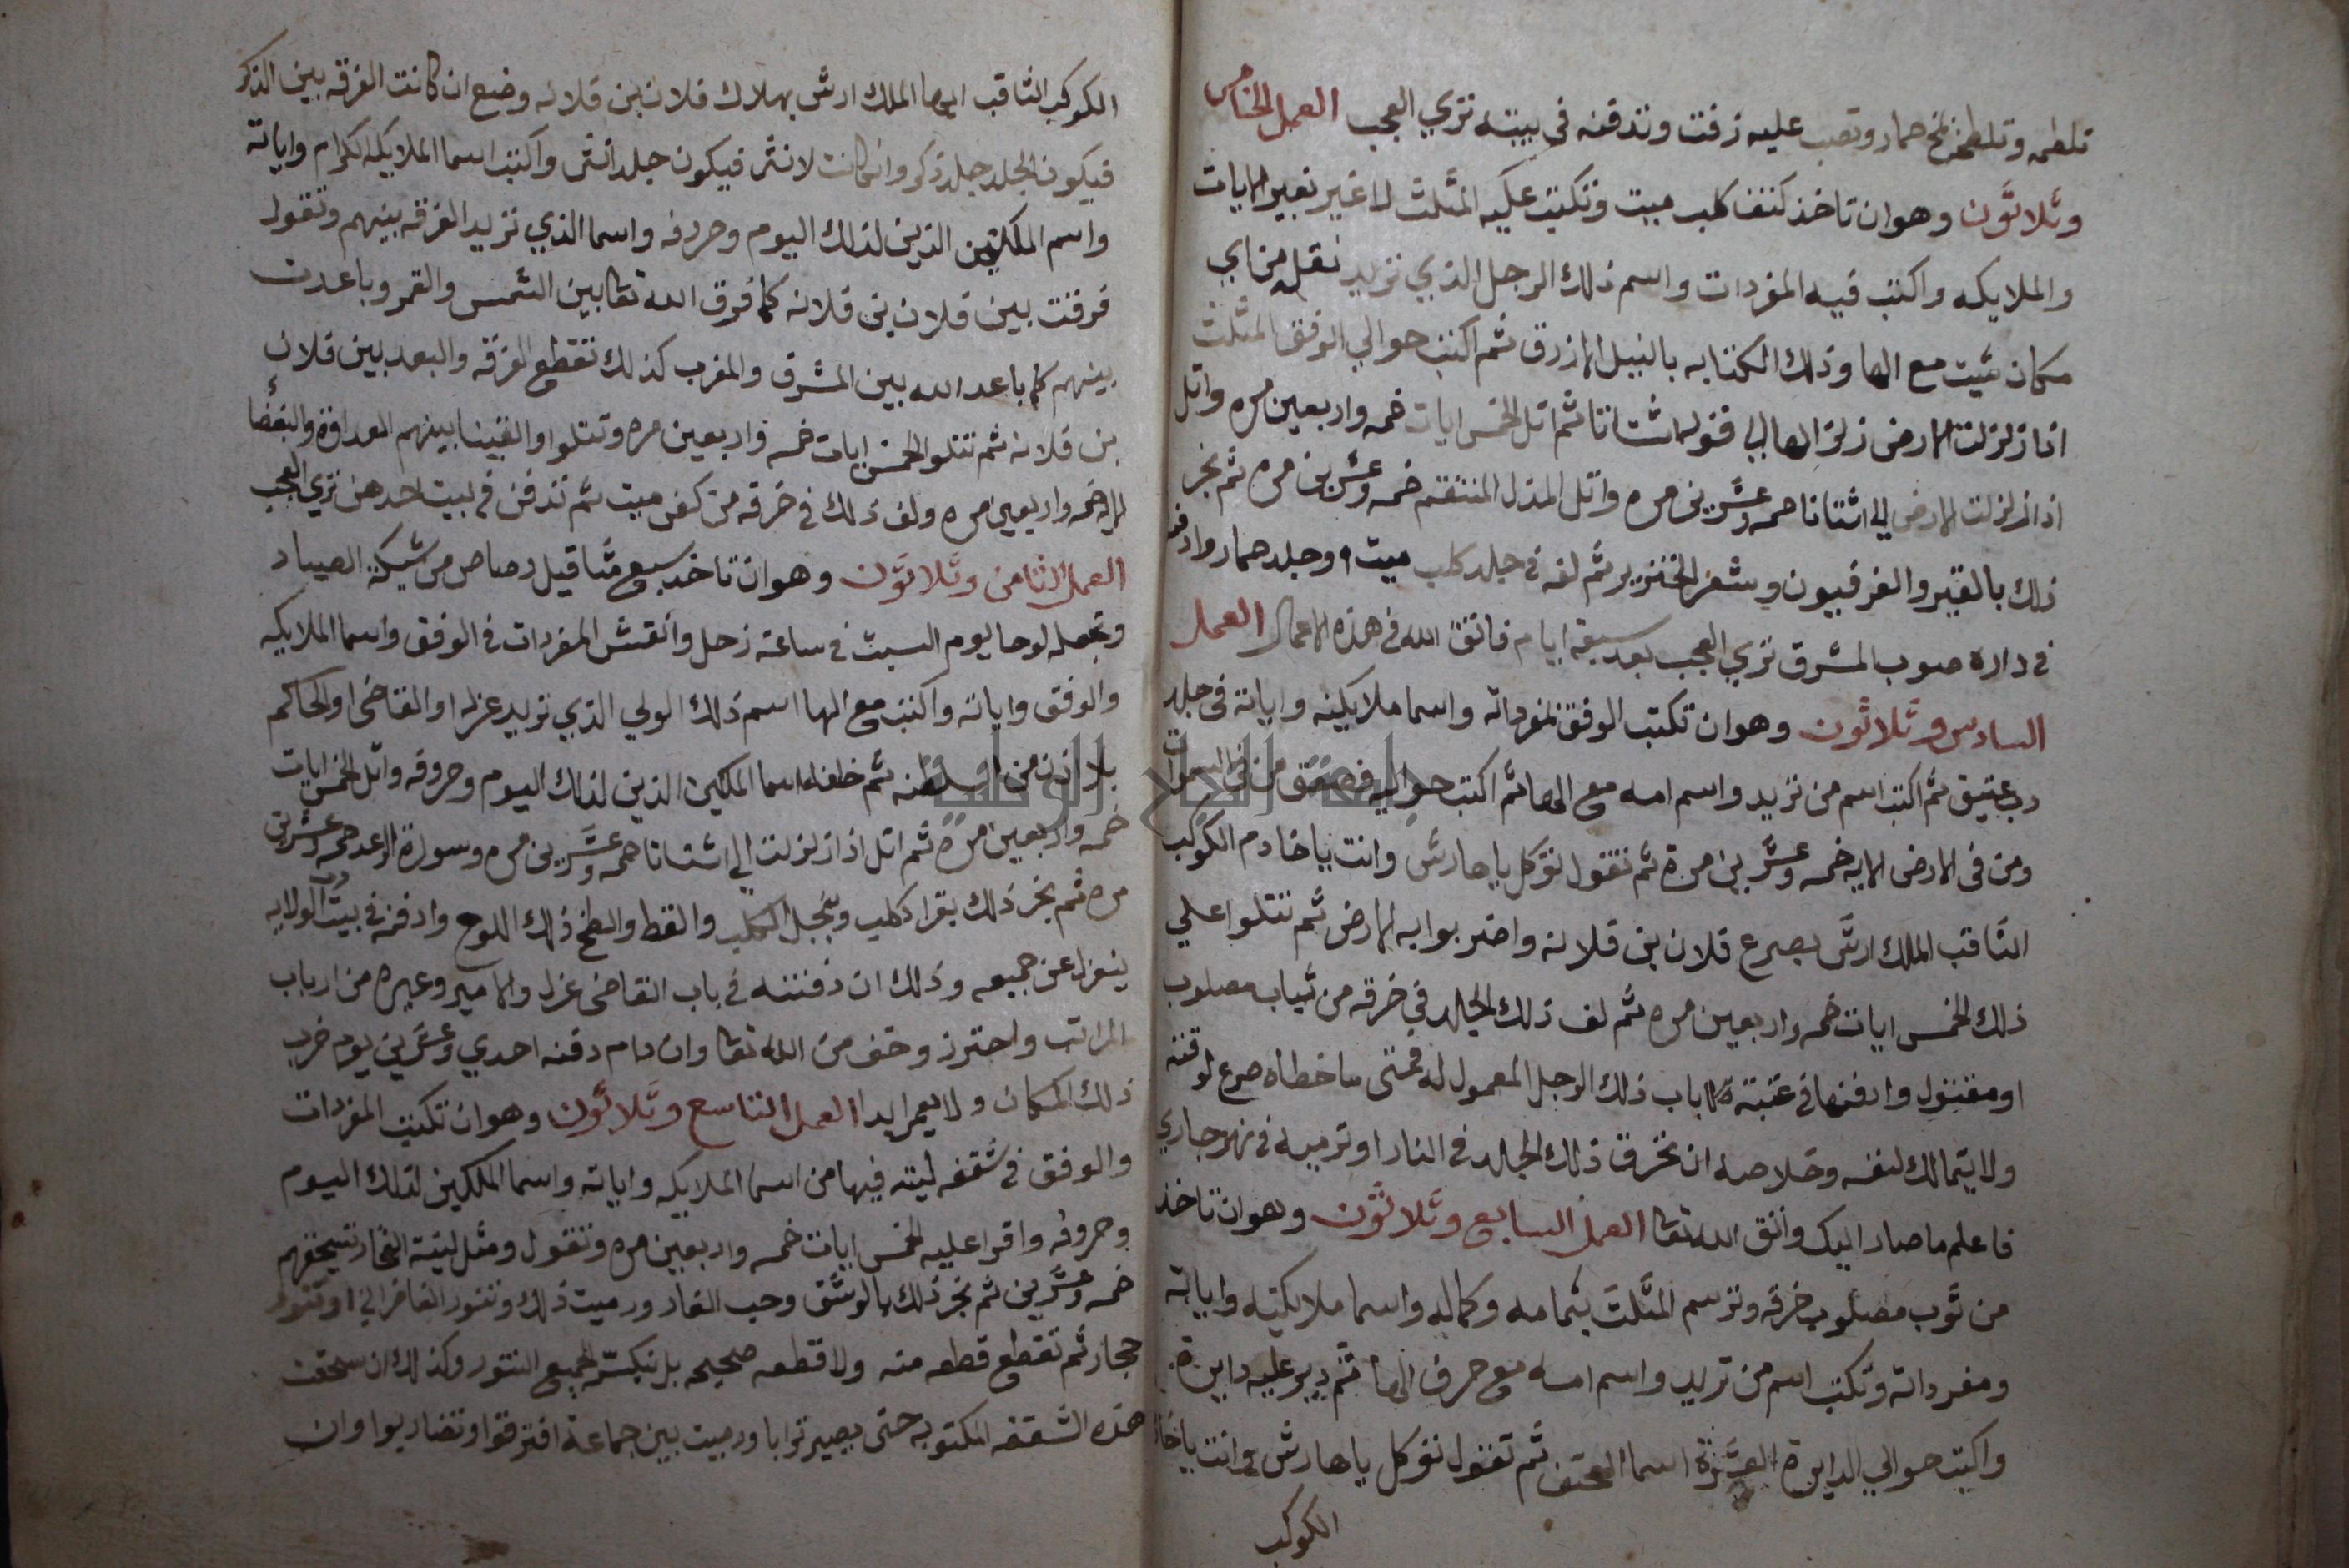 تلطمه وتلطخ بمخ حمار وتصب عليه زفت وتدفنه في بيته تري العجب العمل الخامس
وثلاثون وهو ان تاخذ كتف كلب ميت وتكتب عليه المثلث لا غير بغير الايات
والملايكه واكتب فيه المفردات واسم ذلك الرجل الذي تريد نقله من اي
مكان شيت مع الها وذلك الكتابه بالنيل الازرق ثم اكتب حوالي الوفق المثلث
اذا زلزلت الارض زلزالها الي قوله اشتاتا ثم اتل الخمس ايات خمسه واربعين مره واتل
اذا زلزلت الارض الي اشتاتا خمسه وعشرين مره واتل المذل المنتقم خمسه وعشرين مره ثم بخر
ذلك بالقير والفرفيون وشعر الخنزير ثم لفه في جلد كلب ميت او جلد حمار وادفنه
في داره صوب المشرق تري العجب بعد سبعة ايام فاتق الله في هذه الاعمال العمل
السادس وثلاثون وهو ان تكتب الوفق بمفرداته واسما ملايكته واياته في جلد
دب عتيق ثم اكتب اسم من تريد واسم امه مع الها ثم اكتب حواليه فصعق من في السموات
ومن في الارض الايه خمسه وعشرين مرة ثم تقول توكل يا هارش وانت يا خادم الكوكب
الثاقب الملك ارش بصرع فلان بن فلانه واضربوا به الارض ثم تتلوا علي
ذلك الخمس ايات خمسه واربعين مره ثم لف ذلك الجلد في خرقه من ثياب مصلوب
او مقتول وادفنها في عتبة باب ذلك الرجل المعمول له فمتى ما خطاه صرع لوقته
ولا يتمالك لنفسه وخلاصه ان تحرق ذلك الجلد في النار او ترميه في نهر جاري
فاعلم ما صار اليك واتق الله تعا العمل السابع وثلاثون وهو ان تاخذ
من ثوب مصلوب خرقه وترسم المثلث بتمامه وكماله واسما ملايكته واياته
ومفرداته وتكتب اسم من تريد واسم امه مع حرف الها ثم دير عليه دايرة
واكتب حوالي الدايرة العشرة اسما ثم تقول توكل يا هارش وانت يا خادم
الكوكب
الكوكب الثاقب ايها الملك ارش بهلاك فلان بن فلانه وضع ان كانت الفرقه بين الذكر
فيكون الجلد جلد ذكر وان كانت لانثى فيكون جلد انثى واكتب اسما الملايكه الكرام واياته
واسم الملكين الذين لذلك اليوم وحروفه واسما الذي تريد الفرقه بينهم وتقول
فرقت بين فلان بن فلانه كما فرق الله تعا بين الشمس والقمر وباعدت
بينهم كما باعد الله بين المشرق والمغرب كذلك تقطع الفرقه والبعد بين فلان
بن فلانه ثم تتلو الخمس ايات خمسه واربعين مره وتتلوا والقينا بينهم العداوة والبغضا
الايه خمسه واربعين مره ولف ذلك في خرقه من كفن ميت ثم تدفن في بيت احدهن تري العجب
العمل الثامن وثلاثون وهو ان تاخذ سبع مثاقيل رصاص من شبكة الصياد
وتجعله لوحا يوم السبت في ساعة زحل وانقش المفردات في الوفق واسما الملايكه
والوفق واياته واكتب مع الها اسم ذلك الولي الذي تريد عزله او القاضي او الحاكم
بلا اذن من ثم خلفه اسما الملكين الذين لذلك اليوم وحروفه واتل الخمس ايات
خمسه واربعين مرة ثم اتل اذا زلزلت الي اشتاتا خمسه وعشرين مره وسورة الرعد خمسه وعشرين
مره ثم بخر ذلك بقراد كلب والكلب والقط والطخ ذلك اللوح وادفنه في بيت الولايه
ينعزل عن جميعه وذلك ان دفنته في باب القاضي عزل والامير وغيره من ارباب
المراتب واحترز وخف من الله تعا وان دام دفنه احدي وعشرين يوم خرب
ذلك المكان ولا يعمر ابدا العمل التاسع وثلاثون وهو ان تكتب المفردات
والوفق في شقفه نيته فيها من اسما الملايكه واياته واسما الملكين لذلك اليوم
وحروفه واقرا عليه الخمس ايات خمسه واربعين مره وتقول ومثل
خمسه وعشرين ثم بخر ذلك بالوشق وحب الغار ورميت ذلك
ثم تقطع قطعه منه ولا قطعه صحيحه بل تكسر جميع التنور وكذلك ان سحقت
هذه الشقفه المكتوبه حتى يصير ترابا ورميت بين جماعة افترقوا وتضاربوا وان
جامعة النجاح الوطنية